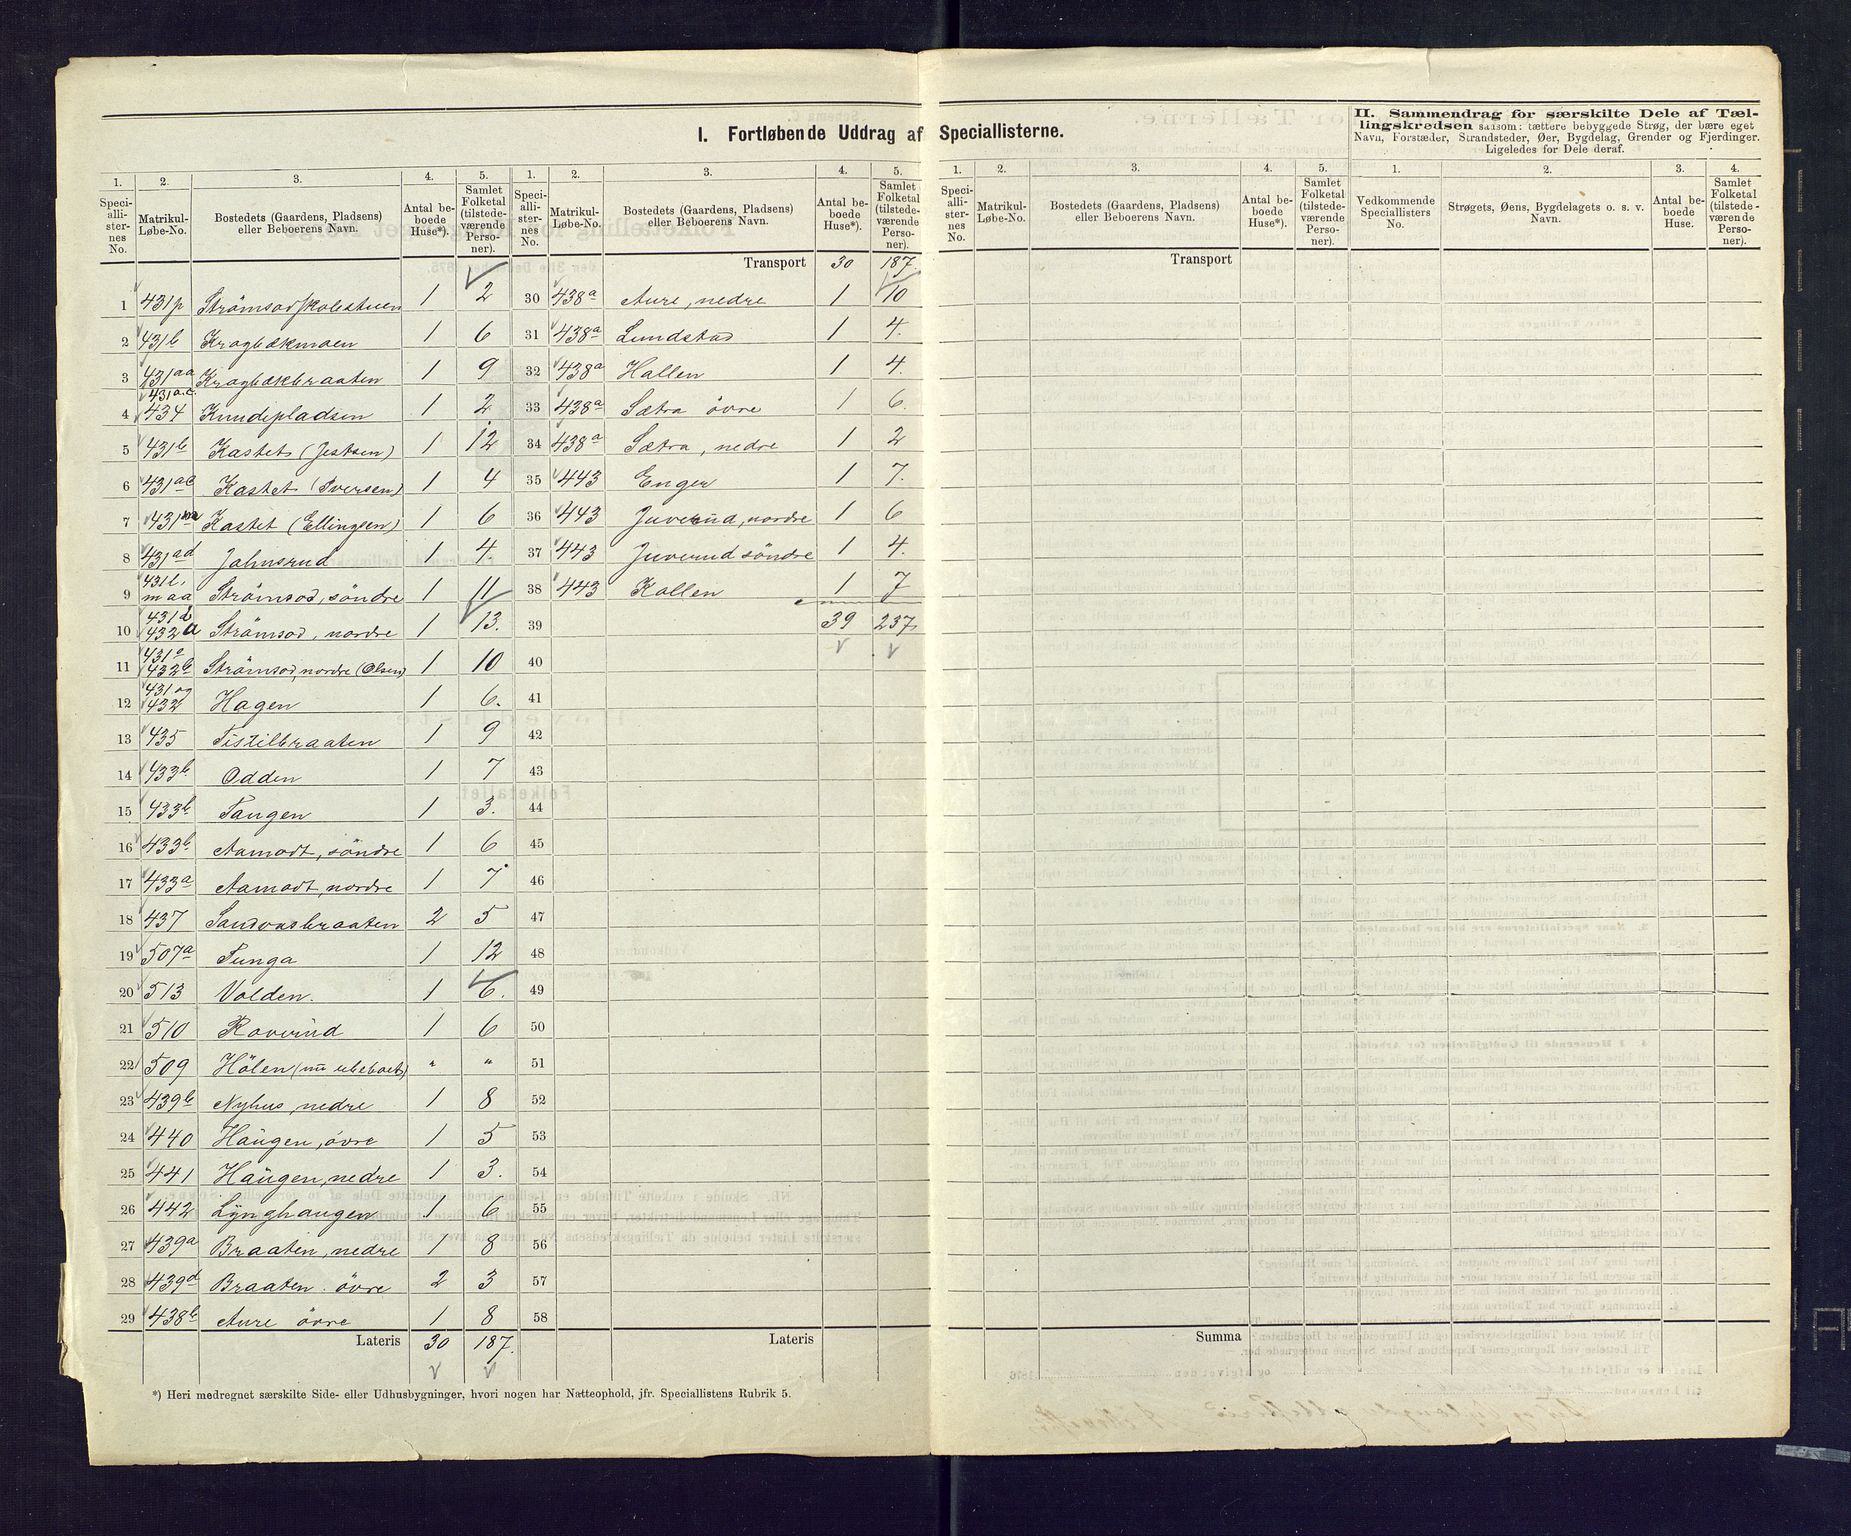 I. Fortløbende Uddrag af Speciallisterne.
II. Sammendrag for særskilte Dele af Tællingskredsen saasom: tættere bebyggede Strøg, der bære eget Navn, Forstæder, Strandsteder, Øer, Bygdelag, Grender og Fjerdinger. Ligeledes for Dele deraf.
1. 2. 3. 4. 5. 1. 2. 3. 4. 5. 1. 2. 3. 4. 5. 1. 2. 3. 4.
Speciallisternes No. Matrikul-Løbe-No. Bostedets (Gaardens, Pladsens) eller Beboerens Navn. Antal beboede Huse*). Samlet Folketal (tilstedeværende Personer).
Speciallisternes No. Matrikul-Løbe-No. Bostedets (Gaardens, Pladsens) eller Beboerens Navn. Antal beboede Huse*). Samlet Folketal (tilstedeværende Personer).
Speciallisternes No. Matrikul-Løbe-No. Bostedets (Gaardens, Pladsens) eller Beboerens Navn. Antal beboede Huse*). Samlet Folketal (tilstedeværende Personer).
Vedkommende Speciallisters No. Strøgets, Øens, Bygdelagets o. s. v. Navn. Antal beboede Huse. Samlet Folketal (tilstedeværende Personer).
1 431p Strömsodskolestuen 1 2
2 431b Krogbækmoen 1 6
3 431aa Krogbækbraaten 1 9
4 431a.c. 434 Knudepladsen 1 2
5 431b Kastet (Jestsen) 1 12
6 431ae Kastet (Iversen) 1 4
7 431 Kastet (Ellingsen) 1 6
8 431ad Johnsrud 1 4.
9 431l. maa Strömsod, söndre 1 11
10 431d 432a Strömsod, nordre 1 13.
11 431a 432b Strömsod, nordre (Olsen) 1 10
12 431 og 432 Hagen 1 6.
13 435 Tistilbraaten 1 9
14 433b. Odden 1 7
15 433b Tangen 1 3.
16 433b. Aamodt, söndre 1 6
17 433a Aamodt, nordre 1 7
18 437 Sandvasbraaten 2 5
19 507a Tunga 1 12
20 513 Volden. 1 6.
21 510 Roverud 1 6
22 509 Hölen (nu ubeboet) " "
23 439b Nyhus, nedre 1 8
24 440 Haugen, övre 1 5
25 441 Haugen, nedre 1 3.
26 442 Lynghaugen 1 6
27 439a Braaten, nedre 1 8
28 439d Braaten. övre 2 3
29 438b Aure övre 1 8
Lateris 30 187.
Transport 30 187.
30 438a Aure, nedre 1 10
31 438a Lundstad 1 4.
32 438a Hallen 1 4.
33 438a Sætra övre 1 6.
34 438a Sætra, nedre 1 2
35 443 Enger 1 7.
36 443 Juverud, nordre 1 6
37 443 Juverud söndre 1 4.
38 443 Kollen 1 7
39 39 237.
40
41
42
43
44
45
46
47
48
49
50
51
52
53
54
55
56
57
58
Lateris
Transport
Summa
*) Heri medregnet særskilte Side- eller Udhusbygninger, hvori nogen har Natteophold, jfr. Speciallistens Rubrik 5.